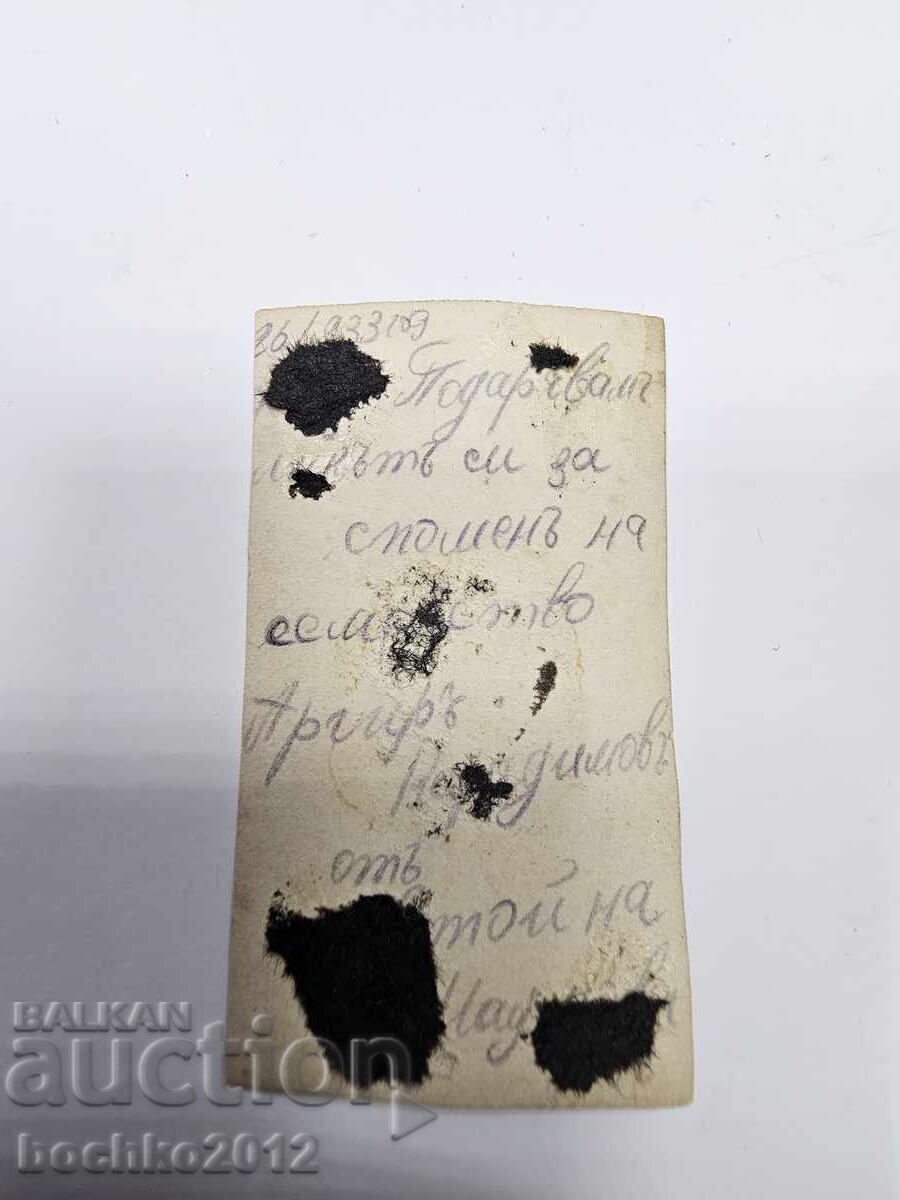 26/ 933 год
Подарѣвамъ
ликътъ си за
споменъ на
семейство
Аргиръ
димовъ
отъ
на
BALKAN
auction
bochko2012